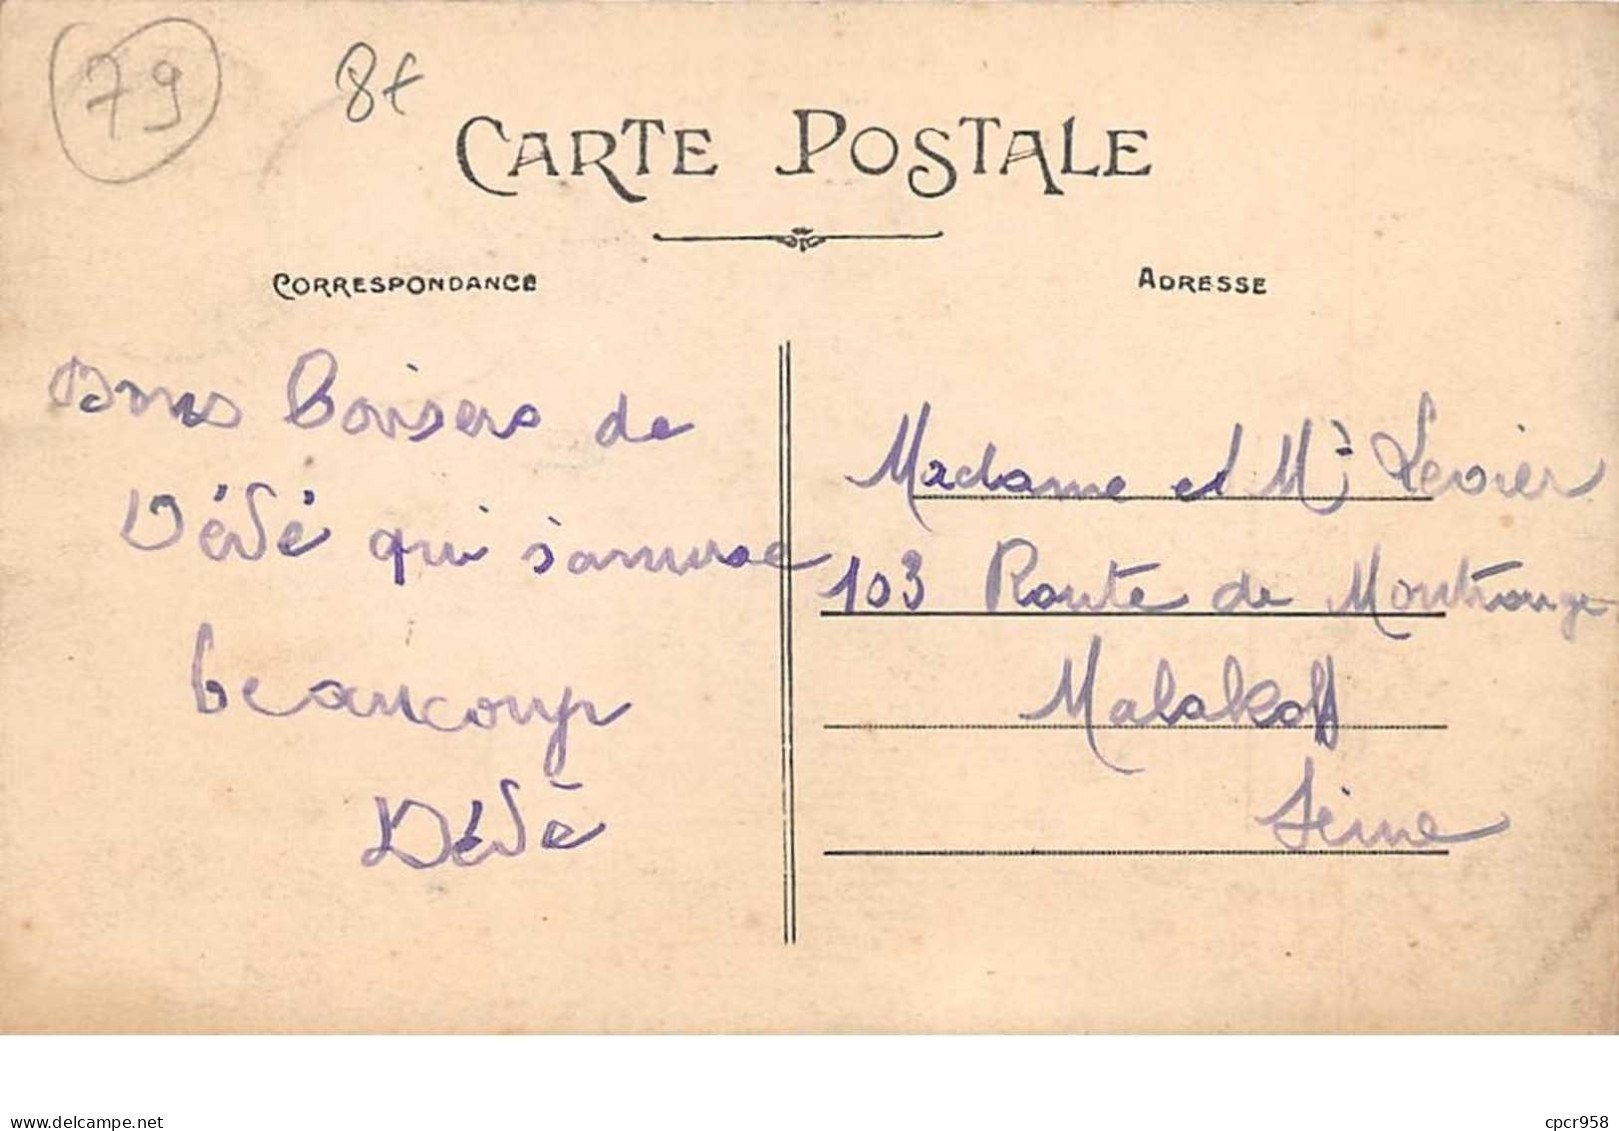 79
8€
CARTE POSTALE
CORRESPONDANCE
ADRESSE
Bons baisers de
Dédé qui s'amuse
beaucoup
Dédé
Madame et Mr
103 Route de Montrouge
Malakoff
Seine
delcampe.net
cpcr958